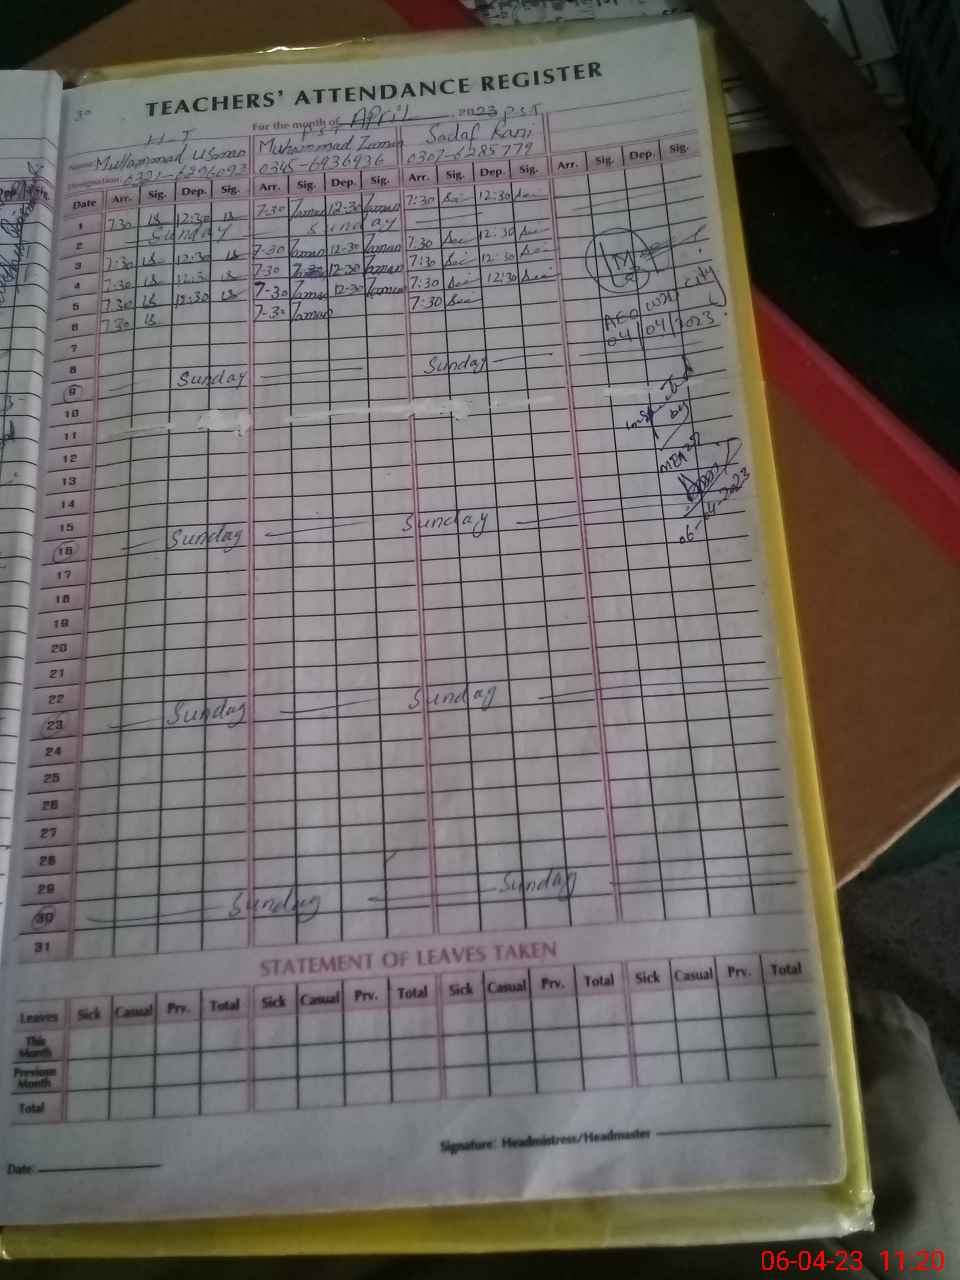 30
TEACHERS' ATTENDANCE REGISTER
For the month of APRIL, 2023
H-T PST PST
Name: Muhammad Usman Muhammad Zaman Sadaf Rani
Designation: 0345-6936936 0307-6285779
Date Arr. Sig. Dep. Sig. Arr. Sig. Dep. Sig. Arr. Sig. Dep. Sig. Arr. Sig. Dep. Sig.
1 7:30 12:30 7-30 Zaman 12-30 Zaman 7:30 12:30
2 Sunday Sunday
3 7:30 12:30 7-30 Zaman 12-30 Zaman 7:30 12:30
4 7:30 12:30 7-30 12-30 Zaman 7:30 12:30
5 7:30 12:30 7-30 Zaman 12-30 Zaman 7:30 12:30
6 7:30 7-30 Zaman 7:30
AEO city
04/04/2023
7
8
9 Sunday Sunday
10
11
by
12
13
MEA
14
06-04-2023
15
16 Sunday Sunday
17
18
19
20
21
22
23 Sunday Sunday
24
25
26
27
28
29
30 Sunday Sunday
31
STATEMENT OF LEAVES TAKEN
Leaves Sick Casual Prv. Total Sick Casual Prv. Total Sick Casual Prv. Total Sick Casual Prv. Total
This Month
Previous Month
Total
Signature: Headmistress/Headmaster
Date:
06-04-23 11:20